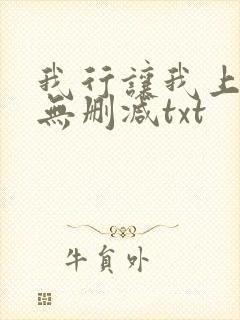 我行讓我上
無刪減txt
牛負外